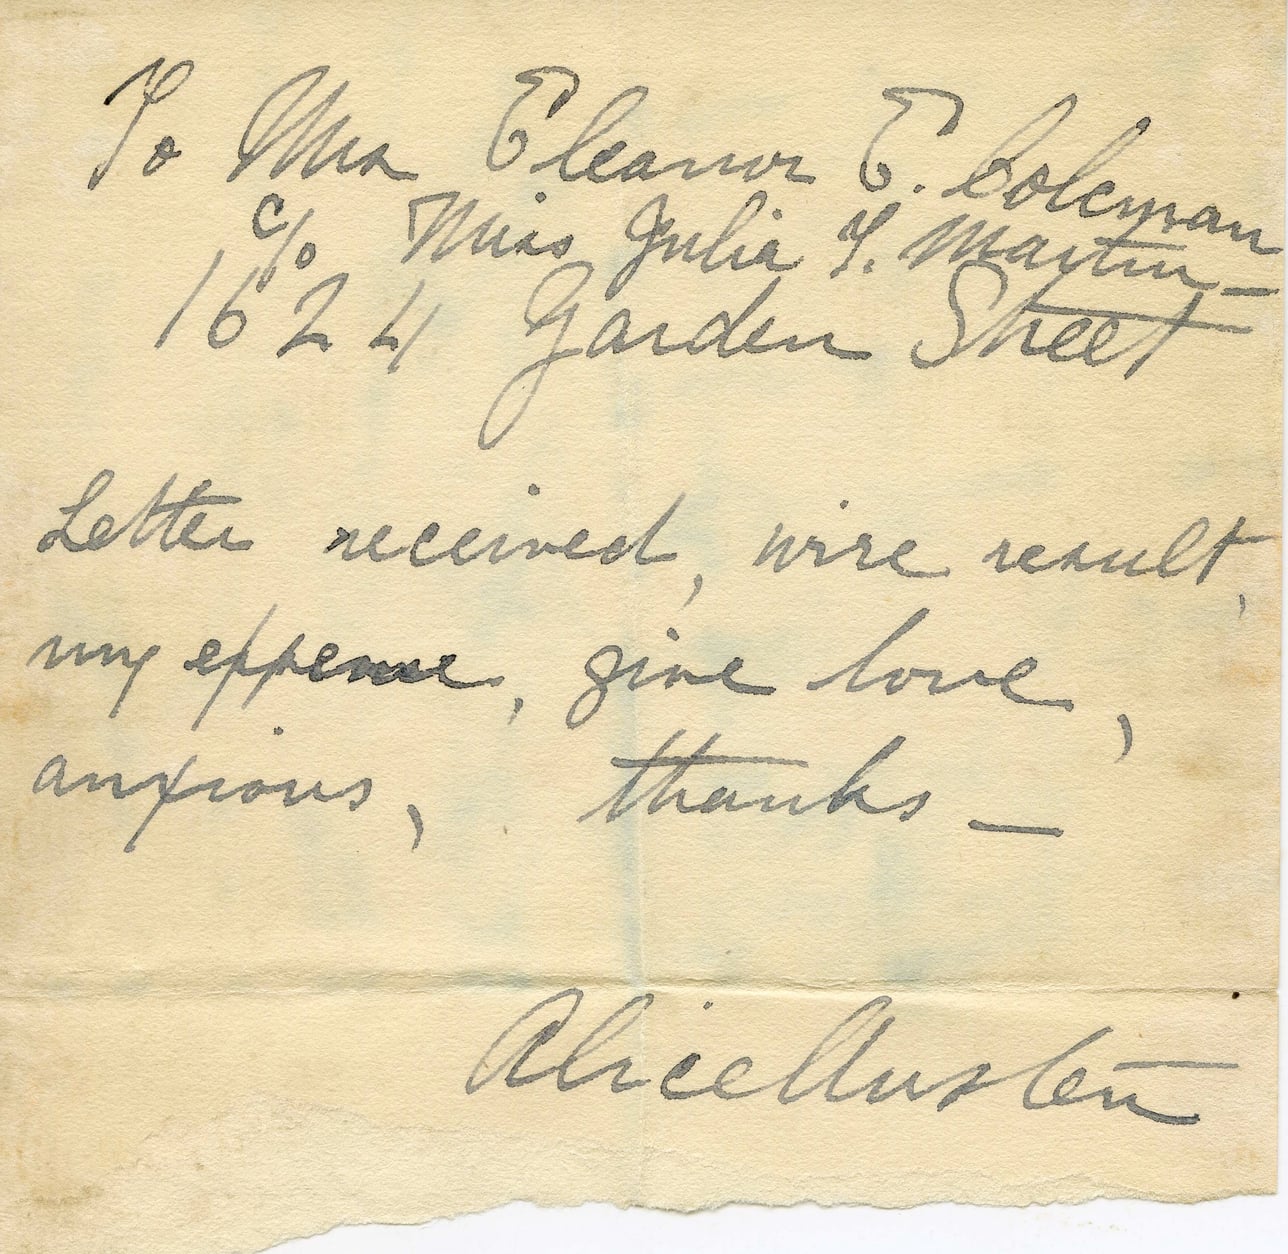 To Mrs Eleanor E. Coleman
c/o Miss Julia T. Martin –
1624 Garden Street
Letter received, wire result,
my expense, give love,
anxious, thanks –
Alice Austen